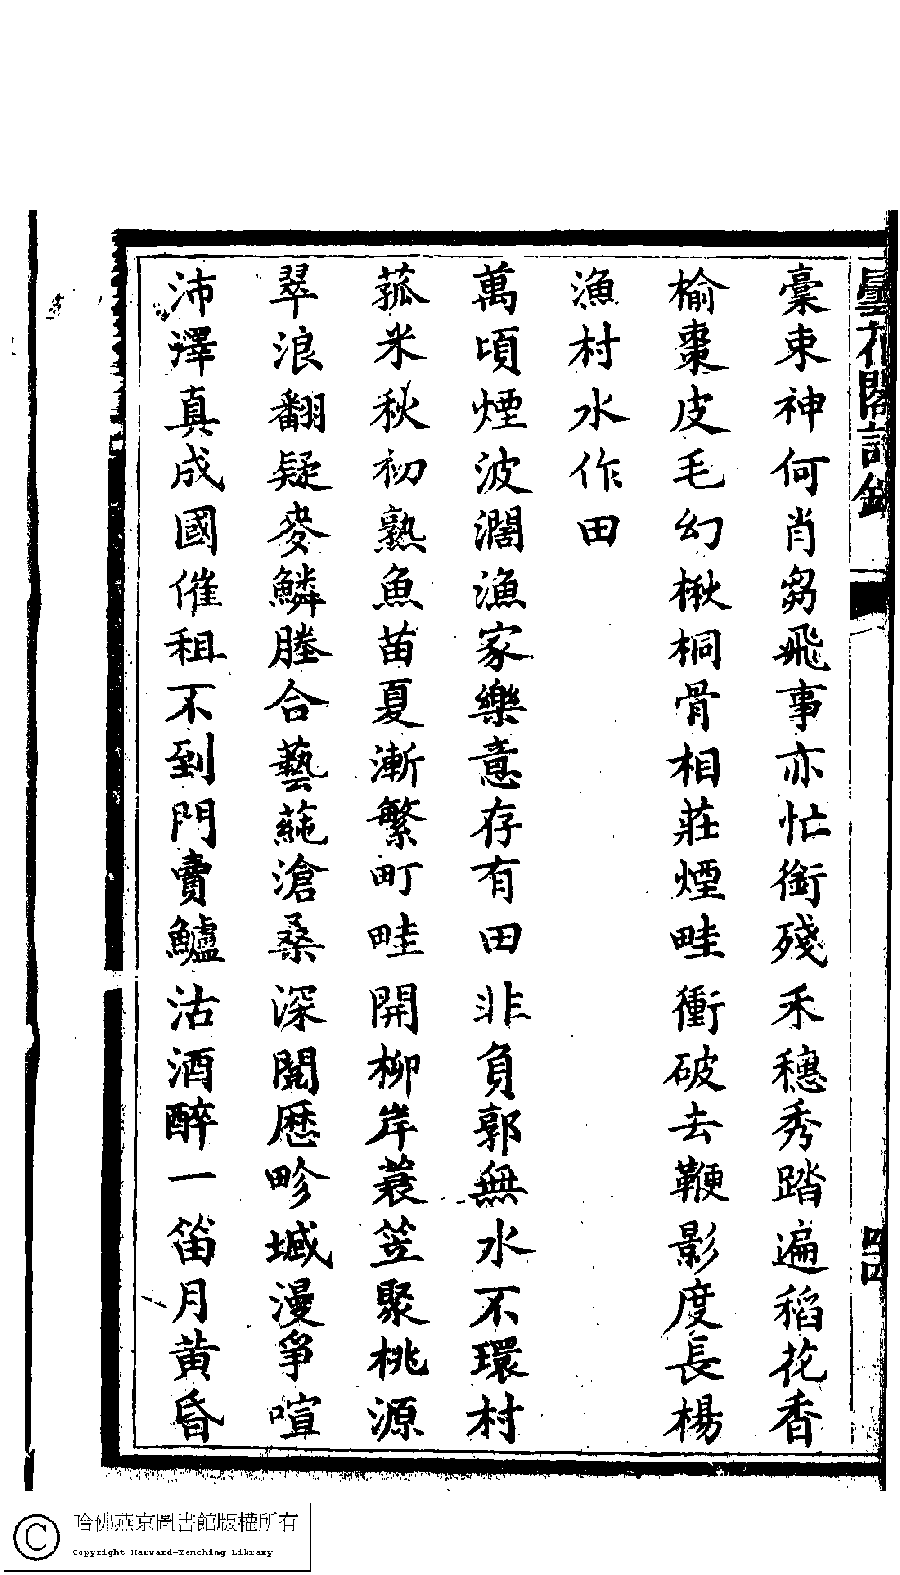 曇花閣詩鈔
橐束神何肖芻飛事亦忙銜殘禾穗秀踏遍稻花香
榆棗皮毛幻楸桐骨相莊煙畦衝破去鞭影度長楊
漁村水作田
萬頃煙波濶漁家樂意存有田非負郭無水不環村
菰米秋初熟魚苗夏漸繁町畦開柳岸蓑笠聚桃源
翠浪翻疑麥鱗塍合藝蒓滄桑深閱歷畛域漫爭喧
沛澤真成國催租不到門賣鱸沽酒醉一笛月黃昏
哈佛燕京圖書館版權所有
Copyright Harvard-Yenching Library